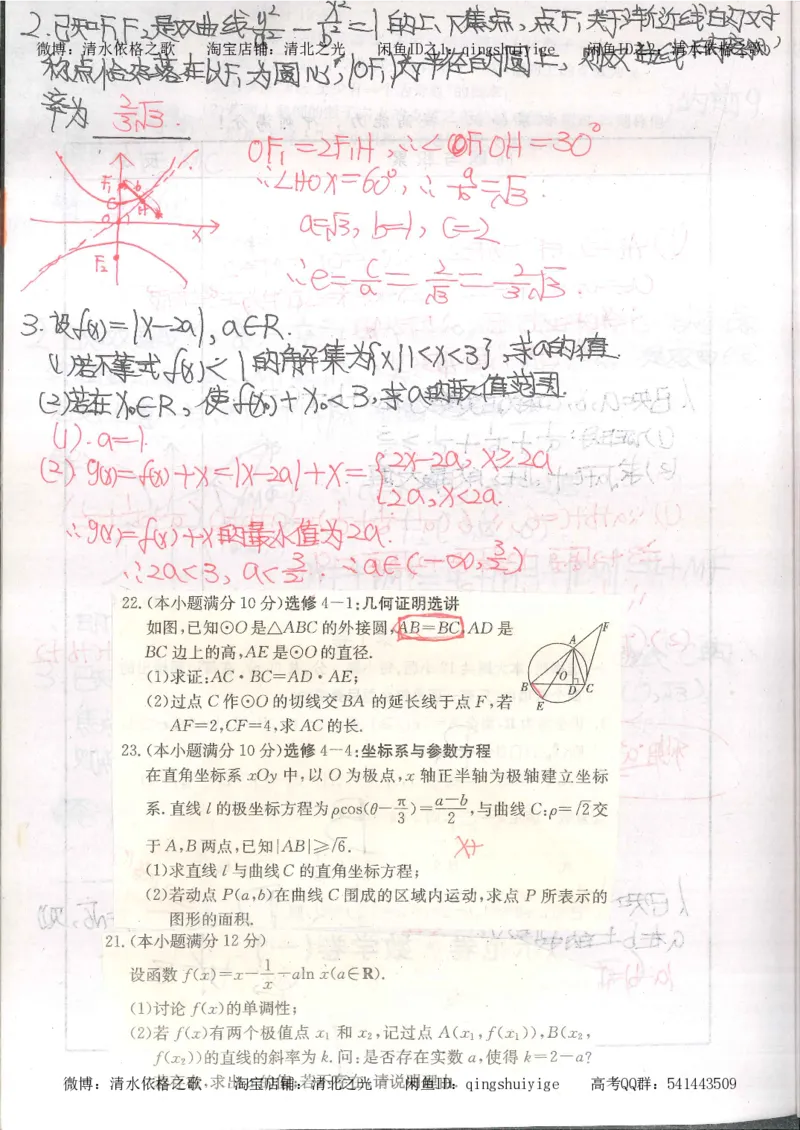 2.已知F₁,F₂是双曲线y²/a²-x²/b²=1的上、下焦点,点F₁关于渐近线的对
微博：清水依格之歌 淘宝店铺：清北之光 闲鱼ID之1：qingshuiyige 闲鱼ID之2：清水依格之歌
称点恰好落在以F₁为圆心,|OF₁|为半径的圆上,则双曲线的离心
率为 2/3√3.
OF₁=2F₁H,∴∠F₁OH=30°
∴∠HOX=60°,∴a/b=√3.
a=√3,b=1,c=2
∴e=c/a=2/√3=2/3√3.
F₁ b
H
O
X
F₂
3.设f(x)=|x-2a|,a∈R.
(1)若不等式f(x)<1的解集为{x|1<x<3},求a的值.
(2)若在x₀∈R,使f(x₀)+x₀<3,求a的取值范围.
(1).a=1.
(2)g(x)=f(x)+x=|x-2a|+x={2x-2a,x≥2a
2a,x<2a.
∴g(x)=f(x)+x的最小值为2a.
∴2a<3,a<3/2.∴a∈(-∞,3/2)
22.(本小题满分10分)选修4-1:几何证明选讲
如图,已知⊙O是△ABC的外接圆,AB=BC,AD是
BC边上的高,AE是⊙O的直径.
(1)求证:AC·BC=AD·AE;
(2)过点C作⊙O的切线交BA的延长线于点F,若
AF=2,CF=4,求AC的长.
F
A
O
B D C
E
23.(本小题满分10分)选修4-4:坐标系与参数方程
在直角坐标系xOy中,以O为极点,x轴正半轴为极轴建立坐标
系.直线l的极坐标方程为ρcos(θ-π/3)=(a-b)/2,与曲线C:ρ=√2交
于A,B两点,已知|AB|≥√6.
(1)求直线l与曲线C的直角坐标方程;
(2)若动点P(a,b)在曲线C围成的区域内运动,求点P所表示的
图形的面积.
21.(本小题满分12分)
设函数f(x)=x-1/x-aln x(a∈R).
(1)讨论f(x)的单调性;
(2)若f(x)有两个极值点x₁和x₂,记过点A(x₁,f(x₁)),B(x₂,
f(x₂))的直线的斜率为k.问:是否存在实数a,使得k=2-a?
微博：清水依格之歌 淘宝店铺：清北之光 闲鱼ID：qingshuiyige 高考QQ群：541443509